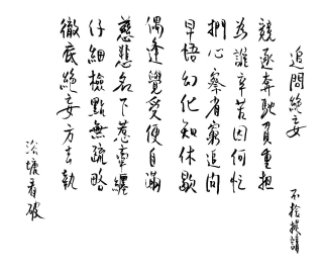 追問絕妄
不捨攀緣
競逐奔馳負重担
為誰辛苦因何忙
捫心察省窮追問
早悟幻化知休歇
偶逢覺受便自滿
慈悲名下惹牽纏
仔細檢點無疏略
徹底絕妄方去執
浴塘看破